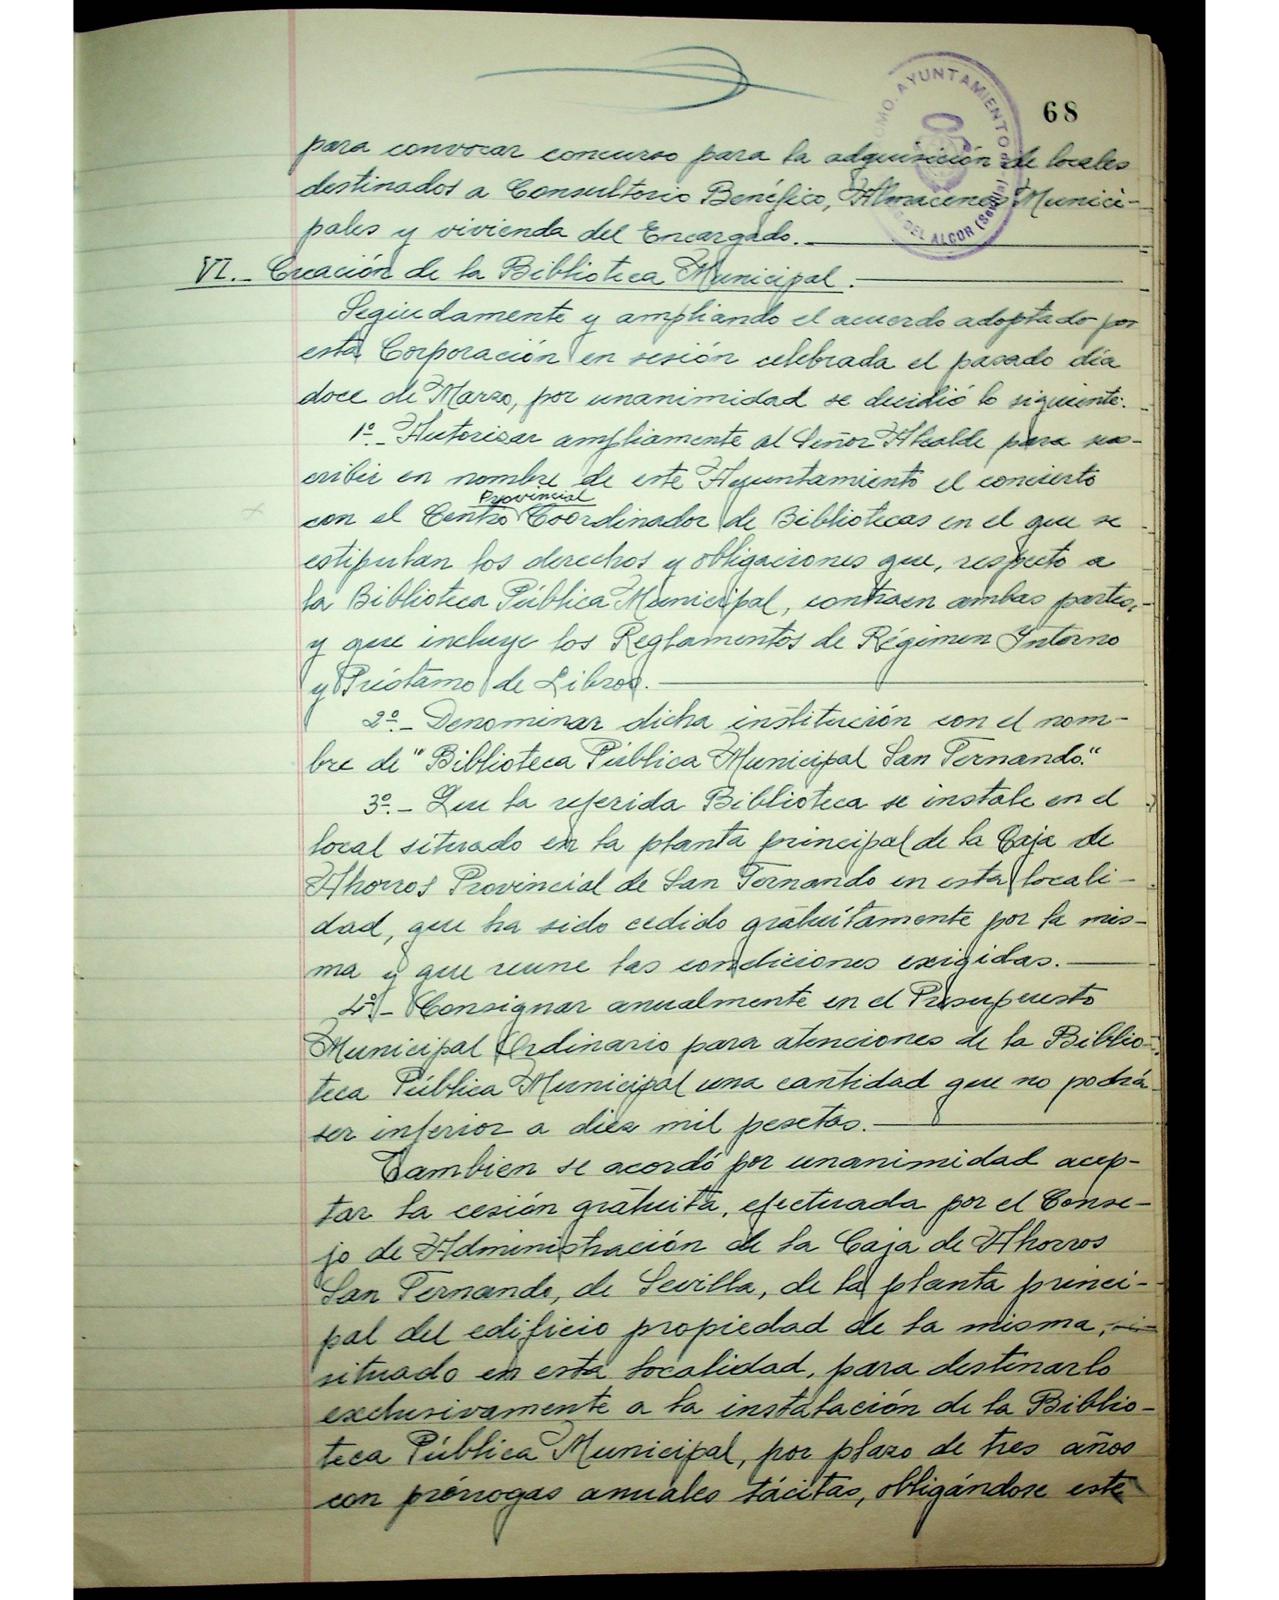 68
EXCMO. AYUNTAMIENTO
DEL ALCOR (Sevilla)
para convocar concurso para la adquisición de locales
destinados a Consultorio Benéfico, Almacenes Munici-
pales y vivienda del Encargado.
VI.- Creación de la Biblioteca Municipal.
Seguidamente y ampliando el acuerdo adoptado por
esta Corporación en sesión celebrada el pasado día
doce de Marzo, por unanimidad se decidió lo siguiente:
1º.- Autorizar ampliamente al Señor Alcalde para sus-
cribir en nombre de este Ayuntamiento el concierto
Provincial
con el Centro Coordinador de Bibliotecas en el que se
estipulan los derechos y obligaciones que, respecto a
la Biblioteca Pública Municipal, contraen ambas partes,
y que incluye los Reglamentos de Régimen Interno
y Préstamo de Libros.
2º.- Denominar dicha institución con el nom-
bre de "Biblioteca Pública Municipal San Fernando."
3º.- Que la referida Biblioteca se instale en el
local situado en la planta principal de la Caja de
Ahorros Provincial de San Fernando en esta locali-
dad, que ha sido cedido gratuitamente por la mis-
ma y que reune las condiciones exigidas.
4º.- Consignar anualmente en el Presupuesto
Municipal Ordinario para atenciones de la Biblio-
teca Pública Municipal una cantidad que no podrá
ser inferior a diez mil pesetas.
Tambien se acordó por unanimidad acep-
tar la cesión gratuita, efectuada por el Conse-
jo de Administración de la Caja de Ahorros
San Fernando, de Sevilla, de la planta princi-
pal del edificio propiedad de la misma,
situado en esta localidad, para destinarlo
exclusivamente a la instalación de la Biblio-
teca Pública Municipal, por plazo de tres años
con prórrogas anuales tácitas, obligándose este